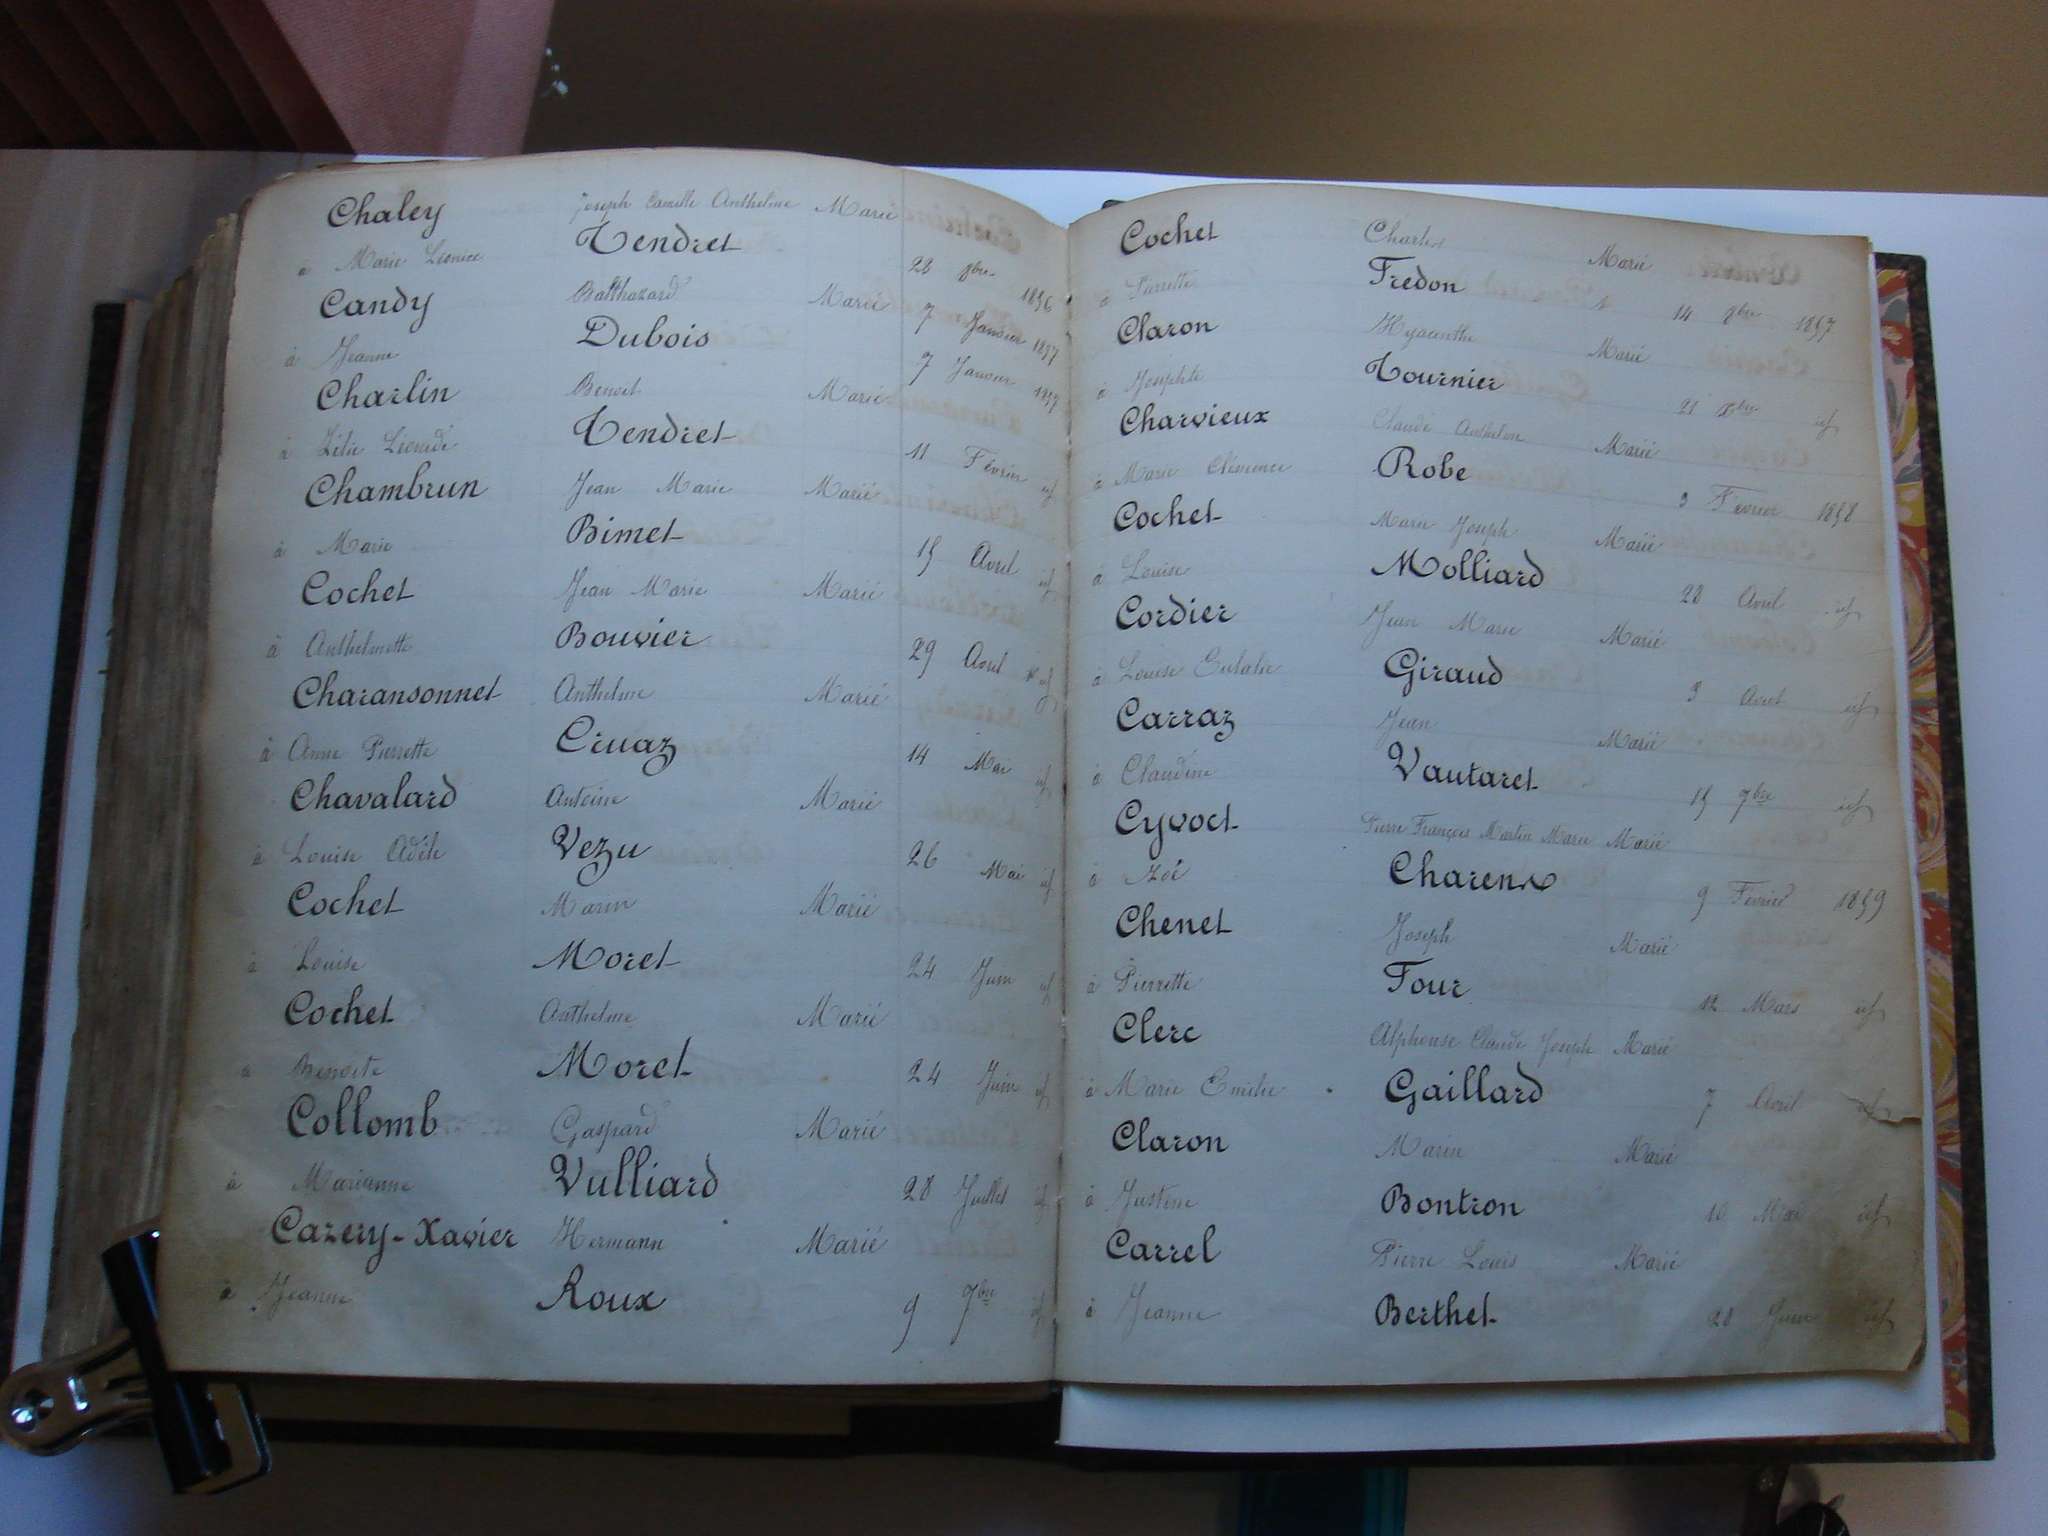 Chaley Joseph Camille Anthelme Marié
à Marie Léonice Tendret 28 8bre 1856
Candy Balthazard Marié 7 Janvier 1857
à Jeanne Dubois 7 Janvier 1857
Charlin Benoit Marié
à Zélie Tendret 11 Février id
Chambrun Jean Marie Marié
à Marie Bimet 15 Avril id
Cochet Jean Marie Marié
à Anthelmette Bouvier 29 Avril id
Charansonnet Anthelme Marié
à Anne Pierrette Cruaz 14 Mai id
Chavalard Antoine Marié
à Louise Adèle Vezu 26 Mai id
Cochet Marin Marié
à Louise Moret 24 Juin id
Cochet Anthelme Marié
à Benoite Moret 24 Juin id
Collomb Gaspard Marié
à Marianne Vulliard 28 Juillet id
Cazery-Xavier Hermann Marié
à Jeanne Roux 9 7bre id
Cochet Charles Marié
à Pierrette Fredon 14 8bre 1857
Claron Hyacinthe Marié
à Josephte Tournier 21 8bre id
Charvieux Claude Anthelme Marié
à Marie Clémence Robe 3 Février 1858
Cochet Marie Joseph Marié
à Louise Molliard 28 Avril id
Cordier Jean Marie Marié
à Louise Eulalie Giraud 3 Avril id
Carraz Jean Marié
à Claudine Vautaret 15 7bre id
Cyvoct Pierre François Martin Marie Marié
à Zoé Charens 9 Février 1859
Chenet Joseph Marié
à Pierrette Four 12 Mars id
Clerc Alphonse Claude Joseph Marié
à Marie Emilie Gaillard 7 Avril id
Claron Marin Marié
à Justine Bontron 10 Mai id
Carrel Pierre Louis Marié
à Jeanne Berthet 28 Juin id